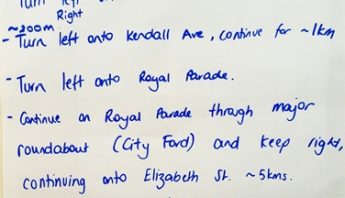 Turn left on
Right
~200m
- Turn left onto Kendall Ave, continue for ~1km
- Turn left onto Royal Parade.
- Continue on Royal Parade through major
roundabout (City Ford) and keep right,
continuing onto Elizabeth St. ~5kms.